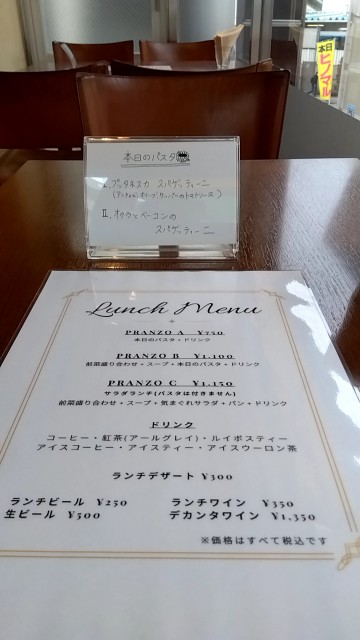 本日
ヒノマル
本日のパスタ
I. プッタネスカ スパゲッティーニ
(アンチョビ、オリーブ、ケッパーのトマトソース)
II. オクラとベーコンの
スパゲッティーニ
Lunch Menu
PRANZO A ¥750
本日のパスタ+ドリンク
PRANZO B ¥1,100
前菜盛り合わせ+スープ+本日のパスタ+ドリンク
PRANZO C ¥1,150
サラダランチ(パスタは付きません)
前菜盛り合わせ+スープ+気まぐれサラダ+パン+ドリンク
ドリンク
コーヒー・紅茶(アールグレイ)・ルイボスティー
アイスコーヒー・アイスティー・アイスウーロン茶
ランチデザート ¥300
ランチビール ¥250 ランチワイン ¥350
生ビール ¥500 デカンタワイン ¥1,350
※価格はすべて税込です